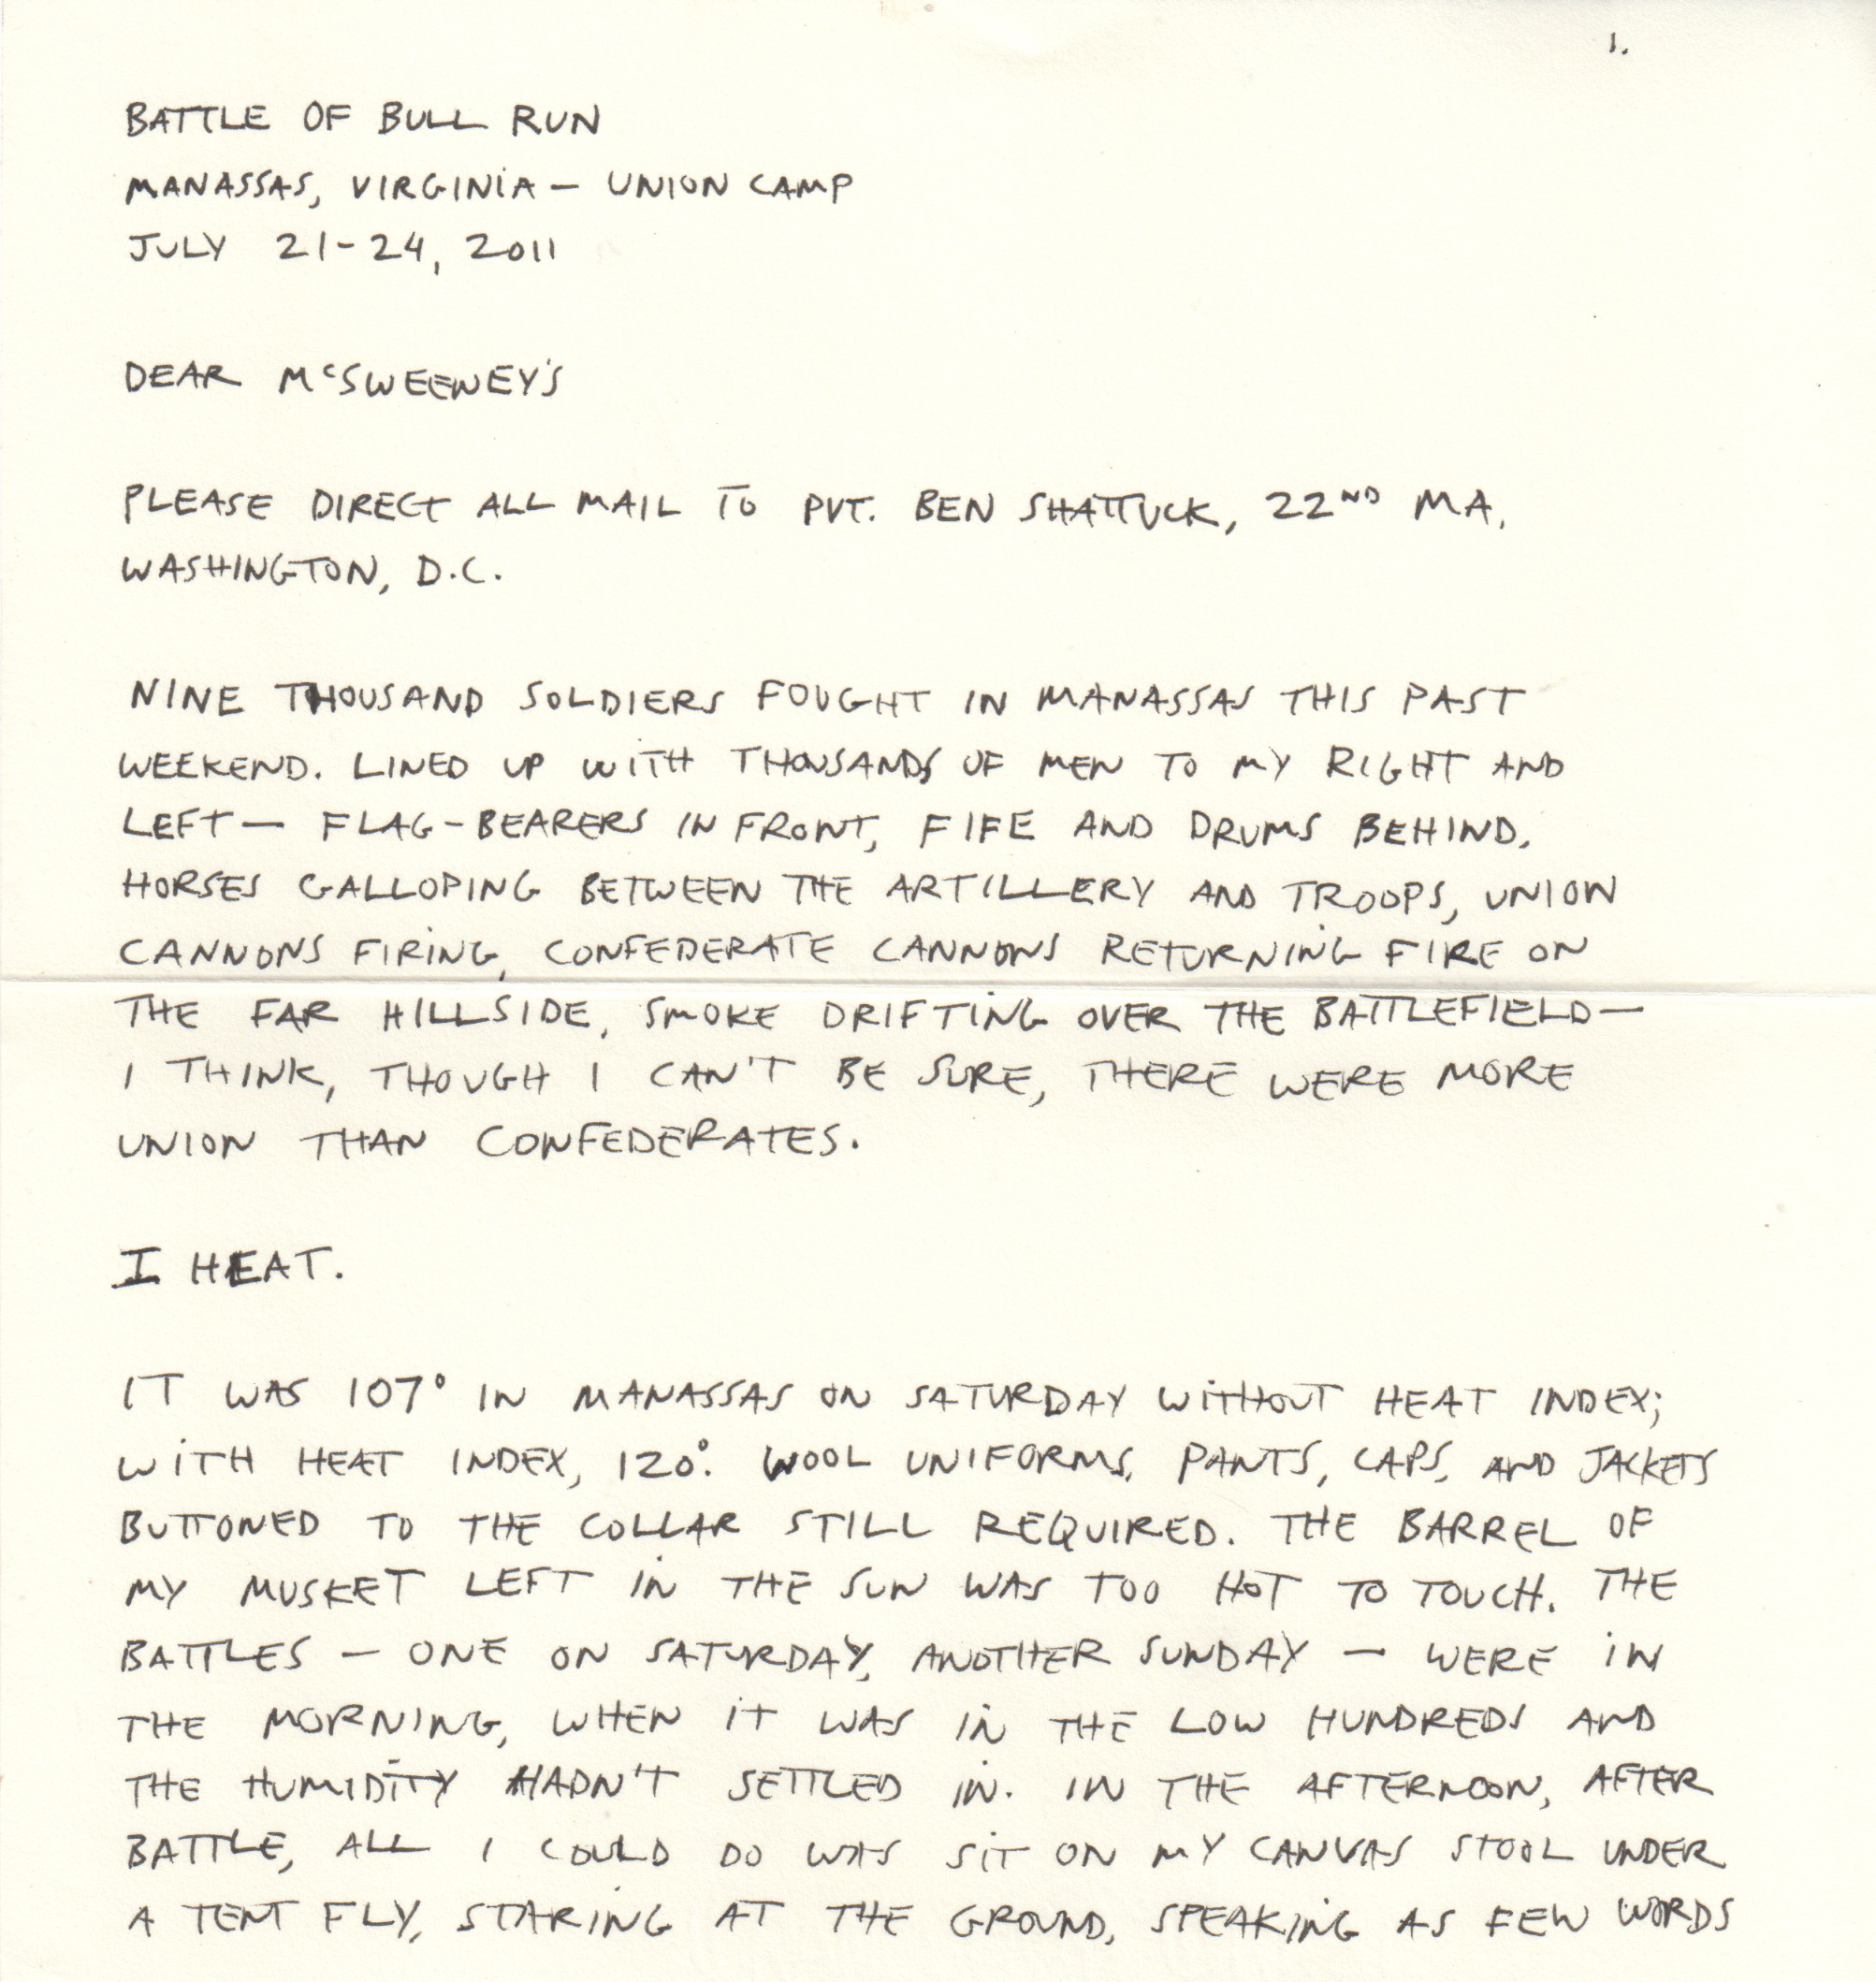 1.
BATTLE OF BULL RUN
MANASSAS, VIRGINIA — UNION CAMP
JULY 21-24, 2011
DEAR McSWEENEY'S
PLEASE DIRECT ALL MAIL TO PVT. BEN SHATTUCK, 22ND MA,
WASHINGTON, D.C.
NINE THOUSAND SOLDIERS FOUGHT IN MANASSAS THIS PAST
WEEKEND. LINED UP WITH THOUSANDS OF MEN TO MY RIGHT AND
LEFT — FLAG-BEARERS IN FRONT, FIFE AND DRUMS BEHIND,
HORSES GALLOPING BETWEEN THE ARTILLERY AND TROOPS, UNION
CANNONS FIRING, CONFEDERATE CANNONS RETURNING FIRE ON
THE FAR HILLSIDE, SMOKE DRIFTING OVER THE BATTLEFIELD —
I THINK, THOUGH I CAN'T BE SURE, THERE WERE MORE
UNION THAN CONFEDERATES.
I HEAT.
IT WAS 107° IN MANASSAS ON SATURDAY WITHOUT HEAT INDEX;
WITH HEAT INDEX, 120°. WOOL UNIFORMS, PANTS, CAPS, AND JACKETS
BUTTONED TO THE COLLAR STILL REQUIRED. THE BARREL OF
MY MUSKET LEFT IN THE SUN WAS TOO HOT TO TOUCH. THE
BATTLES — ONE ON SATURDAY, ANOTHER SUNDAY — WERE IN
THE MORNING, WHEN IT WAS IN THE LOW HUNDREDS AND
THE HUMIDITY HADN'T SETTLED IN. IN THE AFTERNOON, AFTER
BATTLE, ALL I COULD DO WAS SIT ON MY CANVAS STOOL UNDER
A TENT FLY, STARING AT THE GROUND, SPEAKING AS FEW WORDS